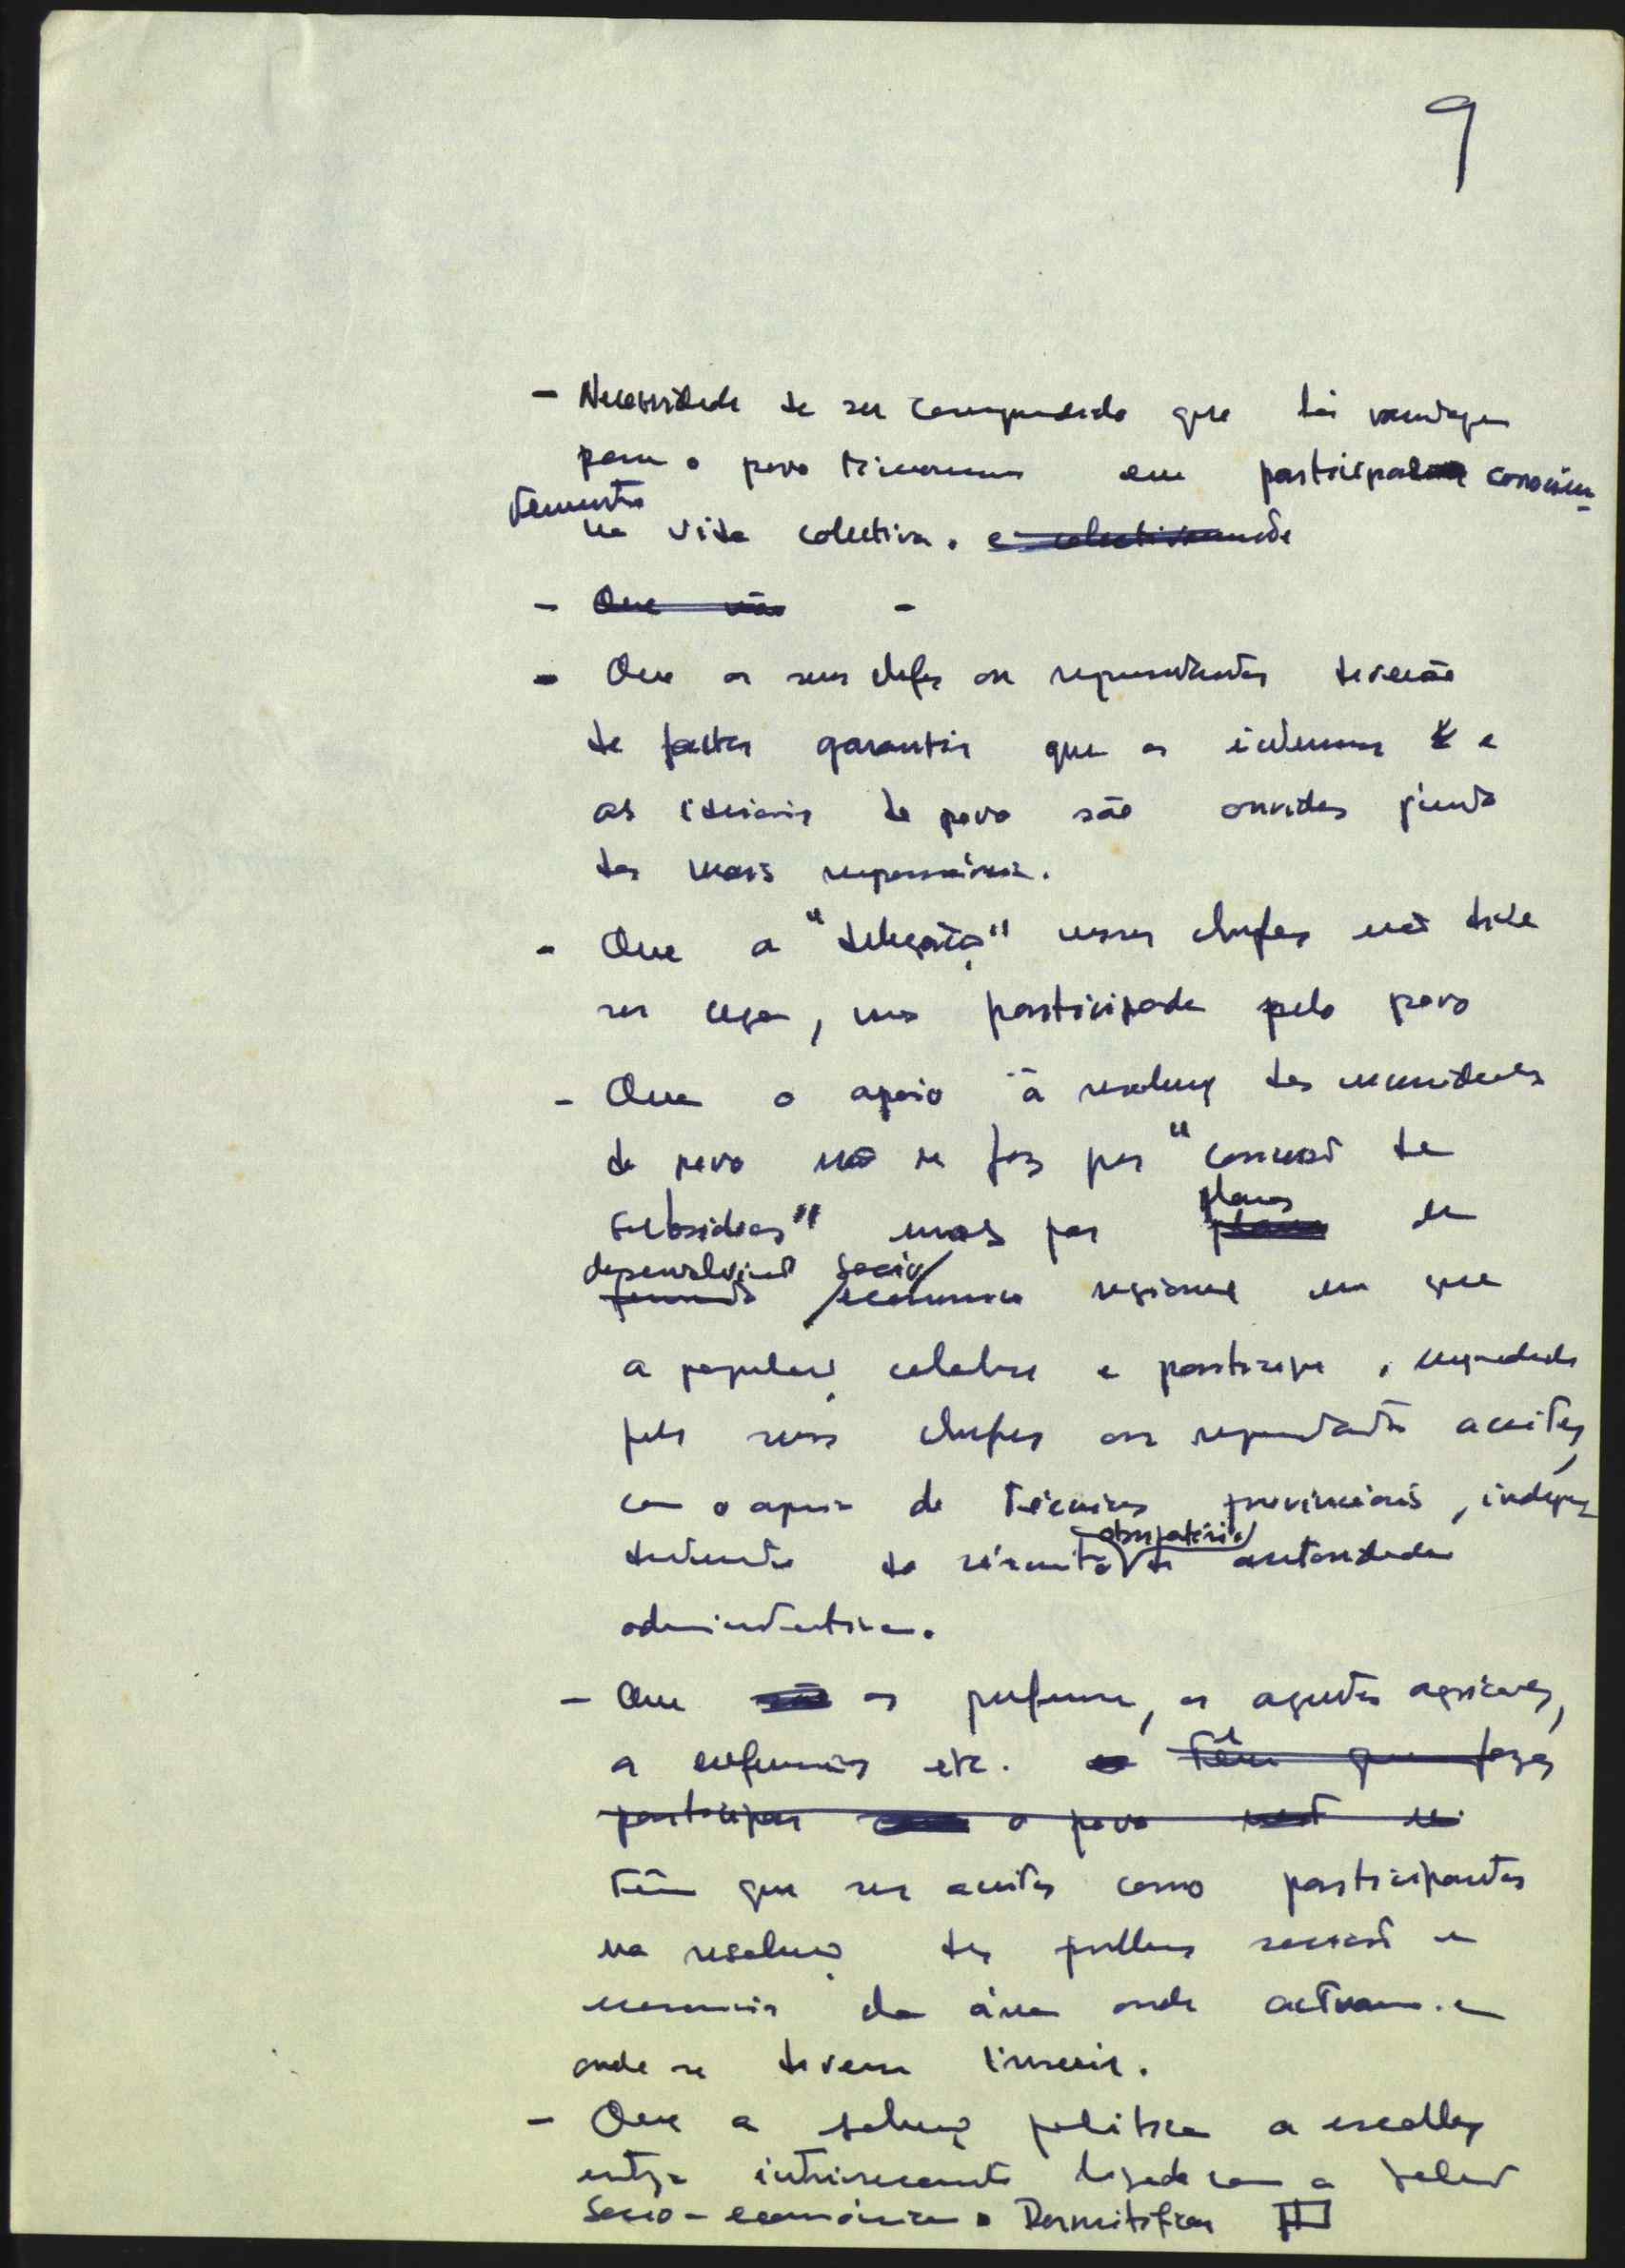 9
- Necessidade de ser compreendido que há vantagem
para o povo timorense em participar conscien-
temente
na vida colectiva. e colectivamente
- Que não -
- Que os seus chefes ou representantes deverão
de facto garantir que os interesses e
as ideias do povo são ouvidas junto
dos mais responsáveis.
- Que a "delegação" nesses chefes não deve
ser cega, mas participada pelo povo
- Que o apoio à resolução das necessidades
do povo não se faz por "concessão de
planos
subsídios" mas por planos de
desenvolvimento socio
fomento económico regional em que
a população colabore e participe,
pelos seus chefes ou representantes aceites,
com o apoio de técnicos provinciais, indepen
obrigatório
dentemente do circuito da autoridade
administrativa.
- Que são os professores, os agentes agrícolas,
os enfermeiros etc. têm que fazer
participar com o povo
têm que ser aceites como participantes
na resolução dos problemas sociais e
economicos da área onde actuam e
onde se devem inserir.
- Que a solução politica a escolher
esteja intrinsecamente ligada com a solução
Socio-económica. Desmitificar